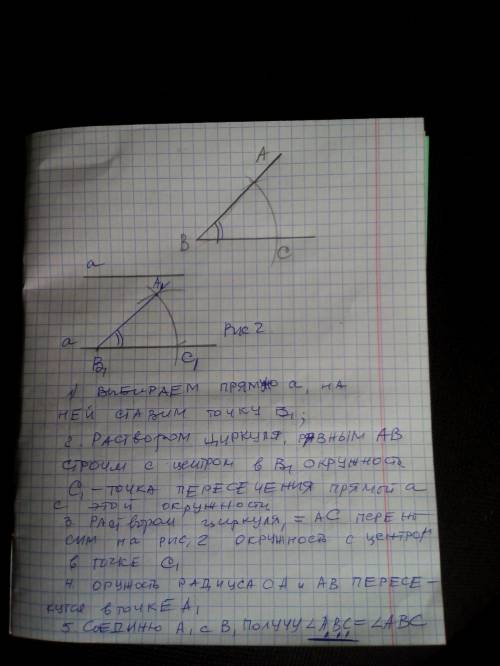 A
B
C
a
A₁
a
B₁
C₁
Рис 2
1) Выбираем прямую a, на
ней ставим точку B₁;
2. Раствором циркуля, равным AB
строим с центром в B₁ окружность
C₁ – точка пересечения прямой a
с этой окружности
3. Раствором циркуля, = AC перено
сим на рис, 2 окружность с центром
в точке C₁
4. Оружность радиуса и AB пересе-
кутся в точке A₁
5. Соединю A₁ с B₁ получу ∠ABC = ∠ABC